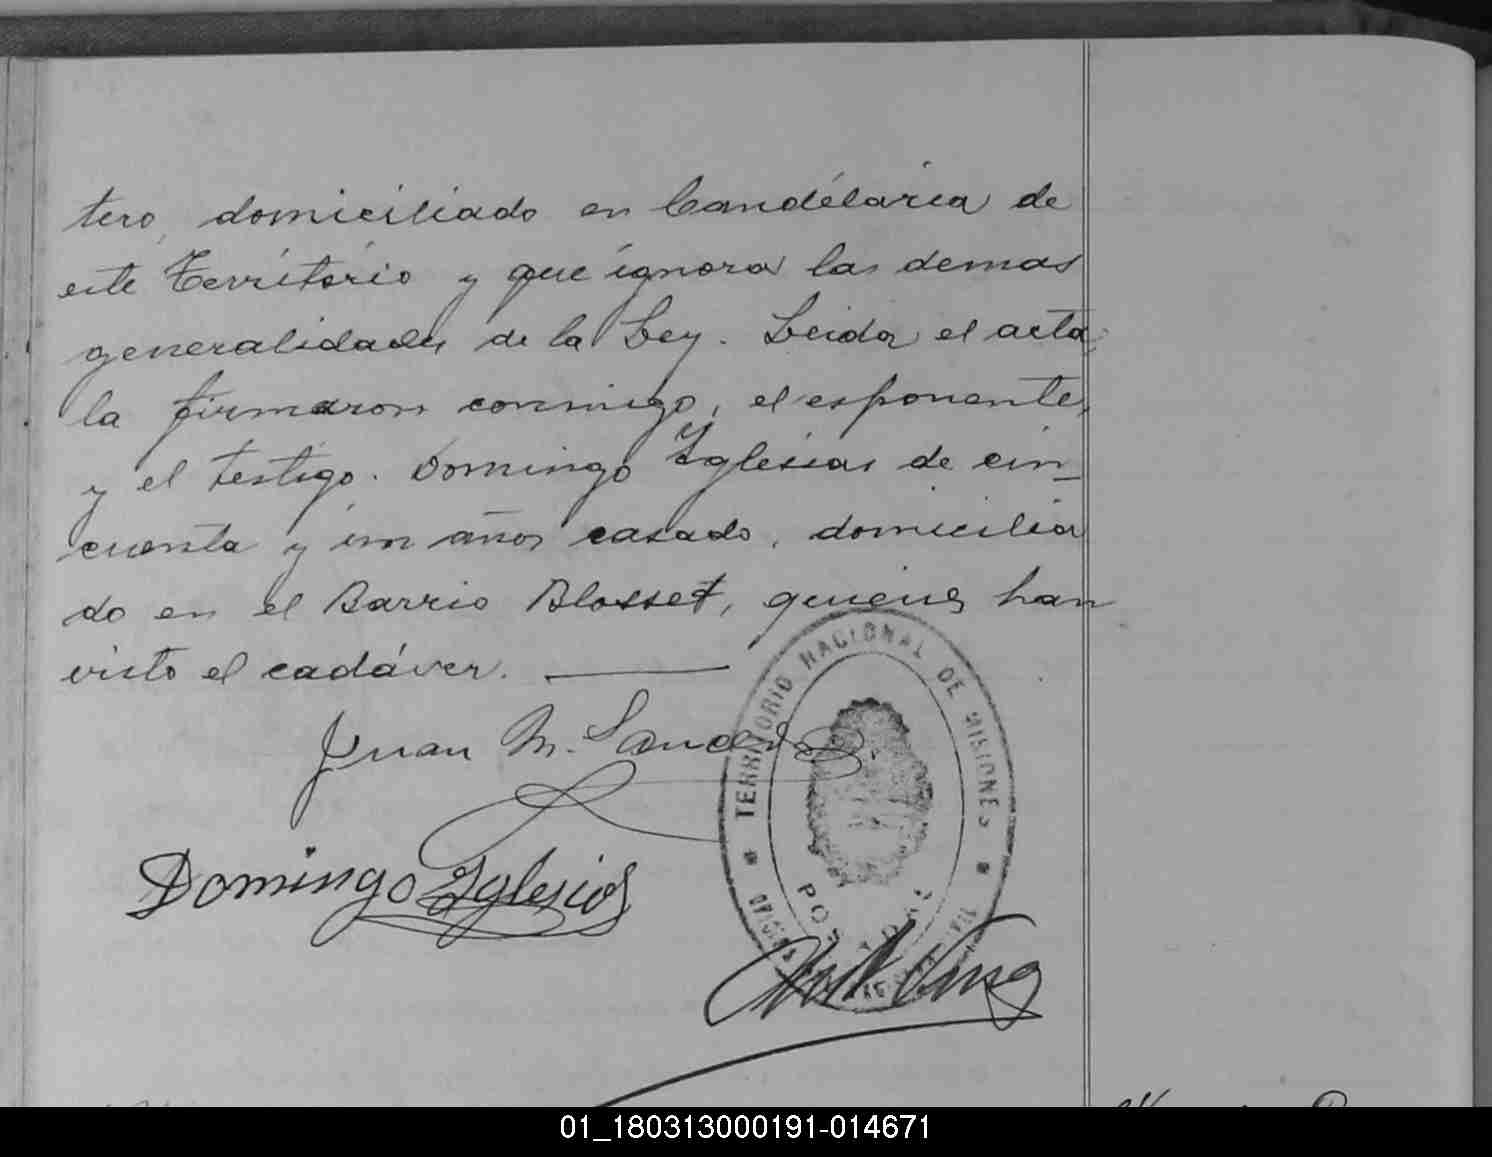 tero, domiciliado en Candelaria de
este Territorio y que ignora las demas
generalidades de la Ley. Leida el acta,
la firmaron conmigo, el esponente,
y el testigo. Domingo Iglesias de cin_
cuenta y un años casado, domicilia
do en el Barrio Blosset, quienes han
visto el cadáver.
Juan M.
Domingo Iglesias
TERRITORIO NACIONAL DE MISIONES
POSADAS
01_180313000191-014671